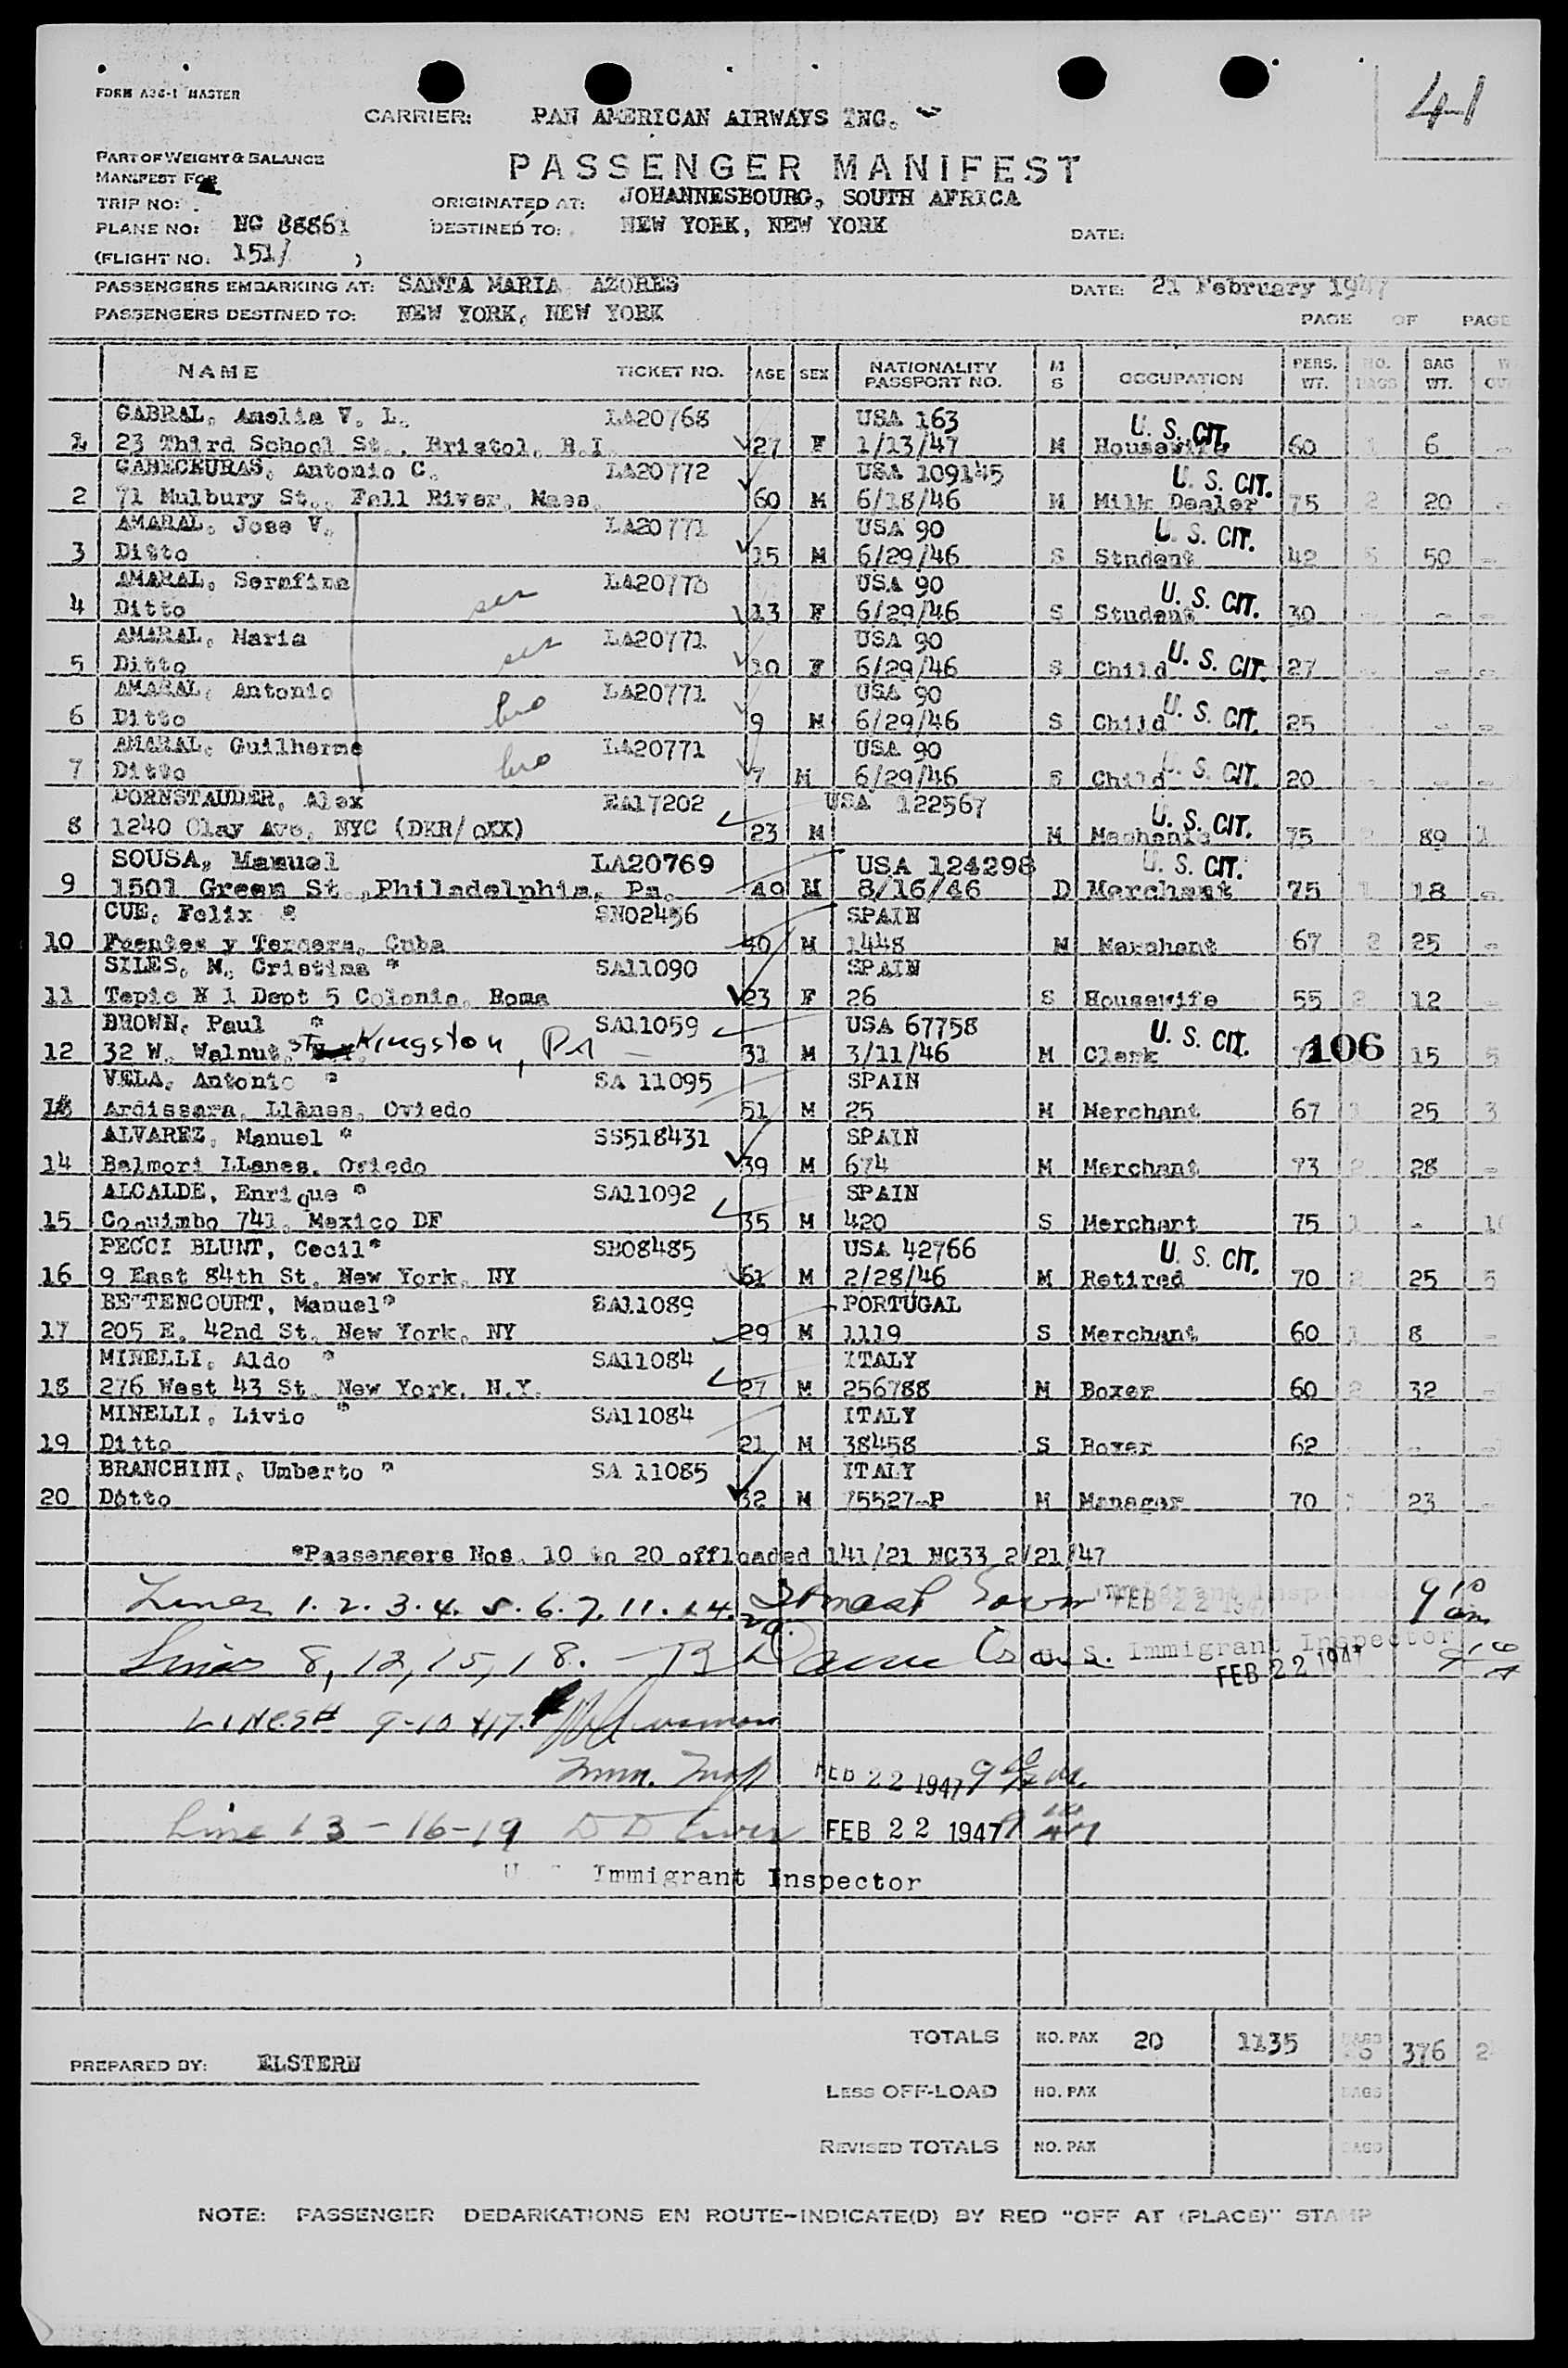 41
FORM A36-1 MASTER
CARRIER: PAN AMERICAN AIRWAYS INC.
PART OF WEIGHT & BALANCE
MANIFEST FOR
PASSENGER MANIFEST
TRIP NO: ORIGINATED AT: JOHANNESBOURG, SOUTH AFRICA
PLANE NO: NC 88861 DESTINED TO: NEW YORK, NEW YORK DATE:
(FLIGHT NO: 151/ )
PASSENGERS EMBARKING AT: SANTA MARIA AZORES DATE: 21 February 1947
PASSENGERS DESTINED TO: NEW YORK, NEW YORK
PAGE OF PAGE
NAME TICKET NO. AGE SEX NATIONALITY PASSPORT NO. M S OCCUPATION PERS. WT. NO. BAGS BAG WT.
CABRAL, Amelia V. L. LA20768 USA 163 U. S. CIT.
1 23 Third School St., Bristol, R.I. 27 F 1/13/47 M Housewife 60 1 6 -
CABECEURAS, Antonio C. LA20772 USA 109145 U. S. CIT.
2 71 Mulbury St., Fall River, Mass. 60 M 6/18/46 M Milk Dealer 75 2 20 -
AMARAL, Jose V. LA20771 USA 90 U. S. CIT.
3 Ditto 15 M 6/29/46 S Student 42 5 50 -
AMARAL, Serafina LA20773 USA 90 U. S. CIT.
4 Ditto ser 13 F 6/29/46 S Student 30 - - -
AMARAL, Maria LA20771 USA 90
5 Ditto ser 10 F 6/29/46 S Child U. S. CIT. 27 - - -
AMARAL, Antonio LA20771 USA 90
6 Ditto bro 9 M 6/29/46 S Child U. S. CIT. 25 - - -
AMARAL, Guilherme LA20771 USA 90
7 Ditto bro 7 M 6/29/46 S Child U. S. CIT. 20 - - -
DORNSTAUDER, Alex EA17202 USA 122567
8 1240 Clay Ave, NYC (DKR/OXX) 23 M M Mechanic U. S. CIT. 75 2 89 1
SOUSA, Manuel LA20769 USA 124298 U. S. CIT.
9 1501 Green St., Philadelphia, Pa. 49 M 8/16/46 D Merchant 75 1 18 -
CUE, Felix * SN02456 SPAIN
10 Fuentes y Tercera, Cuba 40 M 1448 M Merchant 67 2 25 -
SILES, M. Cristina * SA11090 SPAIN
11 Tepic N 1 Dept 5 Colonia, Roma 23 F 26 S Housewife 55 2 12 -
BROWN, Paul * SA11059 USA 67758
12 32 W. Walnut, St. Kingston, Pa 31 M 3/11/46 M Clerk U. S. CIT. 106 15 5
VELA, Antonio * SA 11095 SPAIN
13 Ardissara, Llanes, Oviedo 51 M 25 M Merchant 67 1 25 3
ALVAREZ, Manuel * SS518431 SPAIN
14 Balmori LLanes, Oviedo 39 M 674 M Merchant 73 2 28 -
ALCALDE, Enrique * SA11092 SPAIN
15 Coquimbo 741, Mexico DF 35 M 420 S Merchant 75 1 -
PECCI BLUNT, Cecil* SB08485 USA 42766 U. S. CIT.
16 9 East 84th St. New York, NY 61 M 2/28/46 M Retired 70 2 25 5
BETTENCOURT, Manuel* SA11089 PORTUGAL
17 205 E. 42nd St. New York, NY 29 M 1119 S Merchant 60 1 8 -
MINELLI, Aldo * SA11084 ITALY
18 276 West 43 St. New York, N.Y. 27 M 256788 M Boxer 60 2 32 -
MINELLI, Livio * SA11084 ITALY
19 Ditto 21 M 38458 S Boxer 62 - -
BRANCHINI, Umberto * SA 11085 ITALY
20 Dotto 32 M 75527-P M Manager 70 1 23 -
*Passengers Nos. 10 to 20 offloaded 141/21 NC33 2/21/47
Lines 1. 2. 3. 4. 5. 6. 7. 11. 14. 20. Immigrant Inspector FEB 22 194 9 10 am
Lines 8, 12, 15, 18. U. S. Immigrant Inspector FEB 22 1947
Lines# 9-10 +17.
Imm. Insp FEB 22 1947
Line 13-16-19 FEB 22 1947
U. S. Immigrant Inspector
TOTALS NO. PAX 20 1135 BAGS 376
PREPARED BY: ELSTERN
LESS OFF-LOAD NO. PAX BAGS
REVISED TOTALS NO. PAX BAGS
NOTE: PASSENGER DEBARKATIONS EN ROUTE-INDICATE(D) BY RED "OFF AT (PLACE)" STAMP